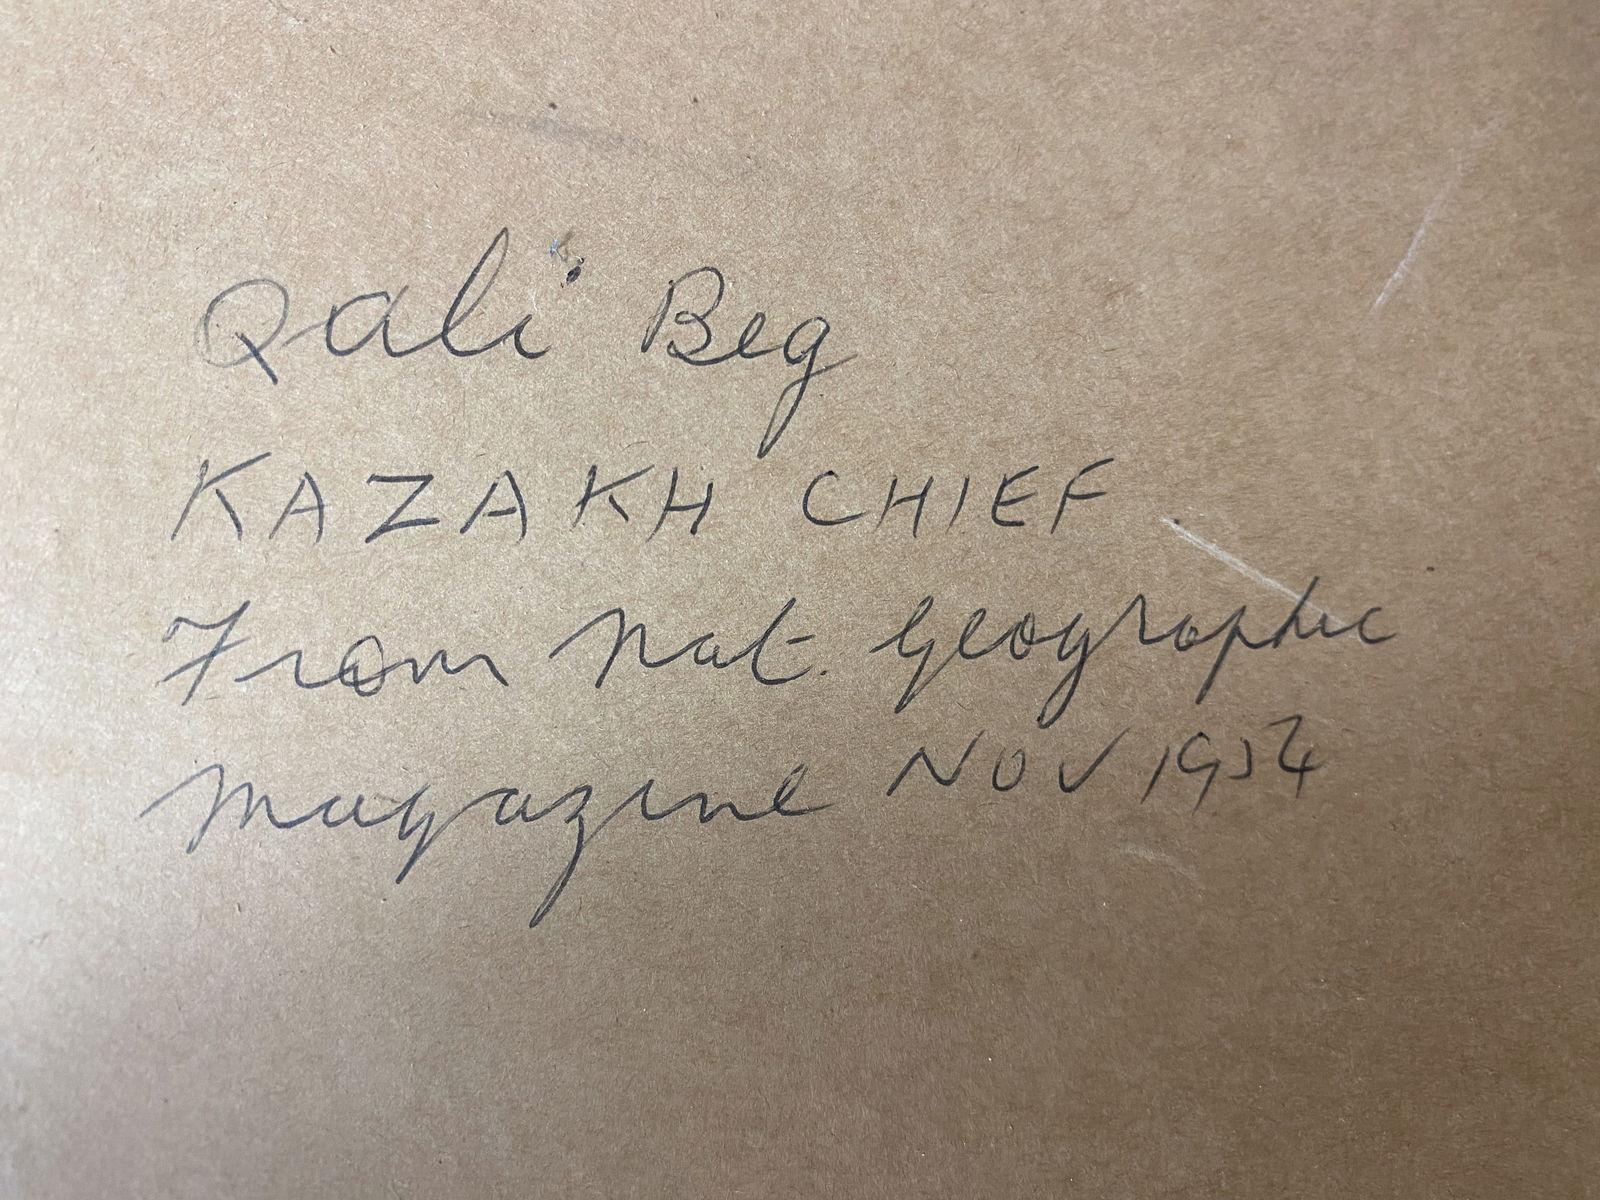 Qali Beg
KAZAKH CHIEF
From Nat. Geographic
Magazine NOV 1954